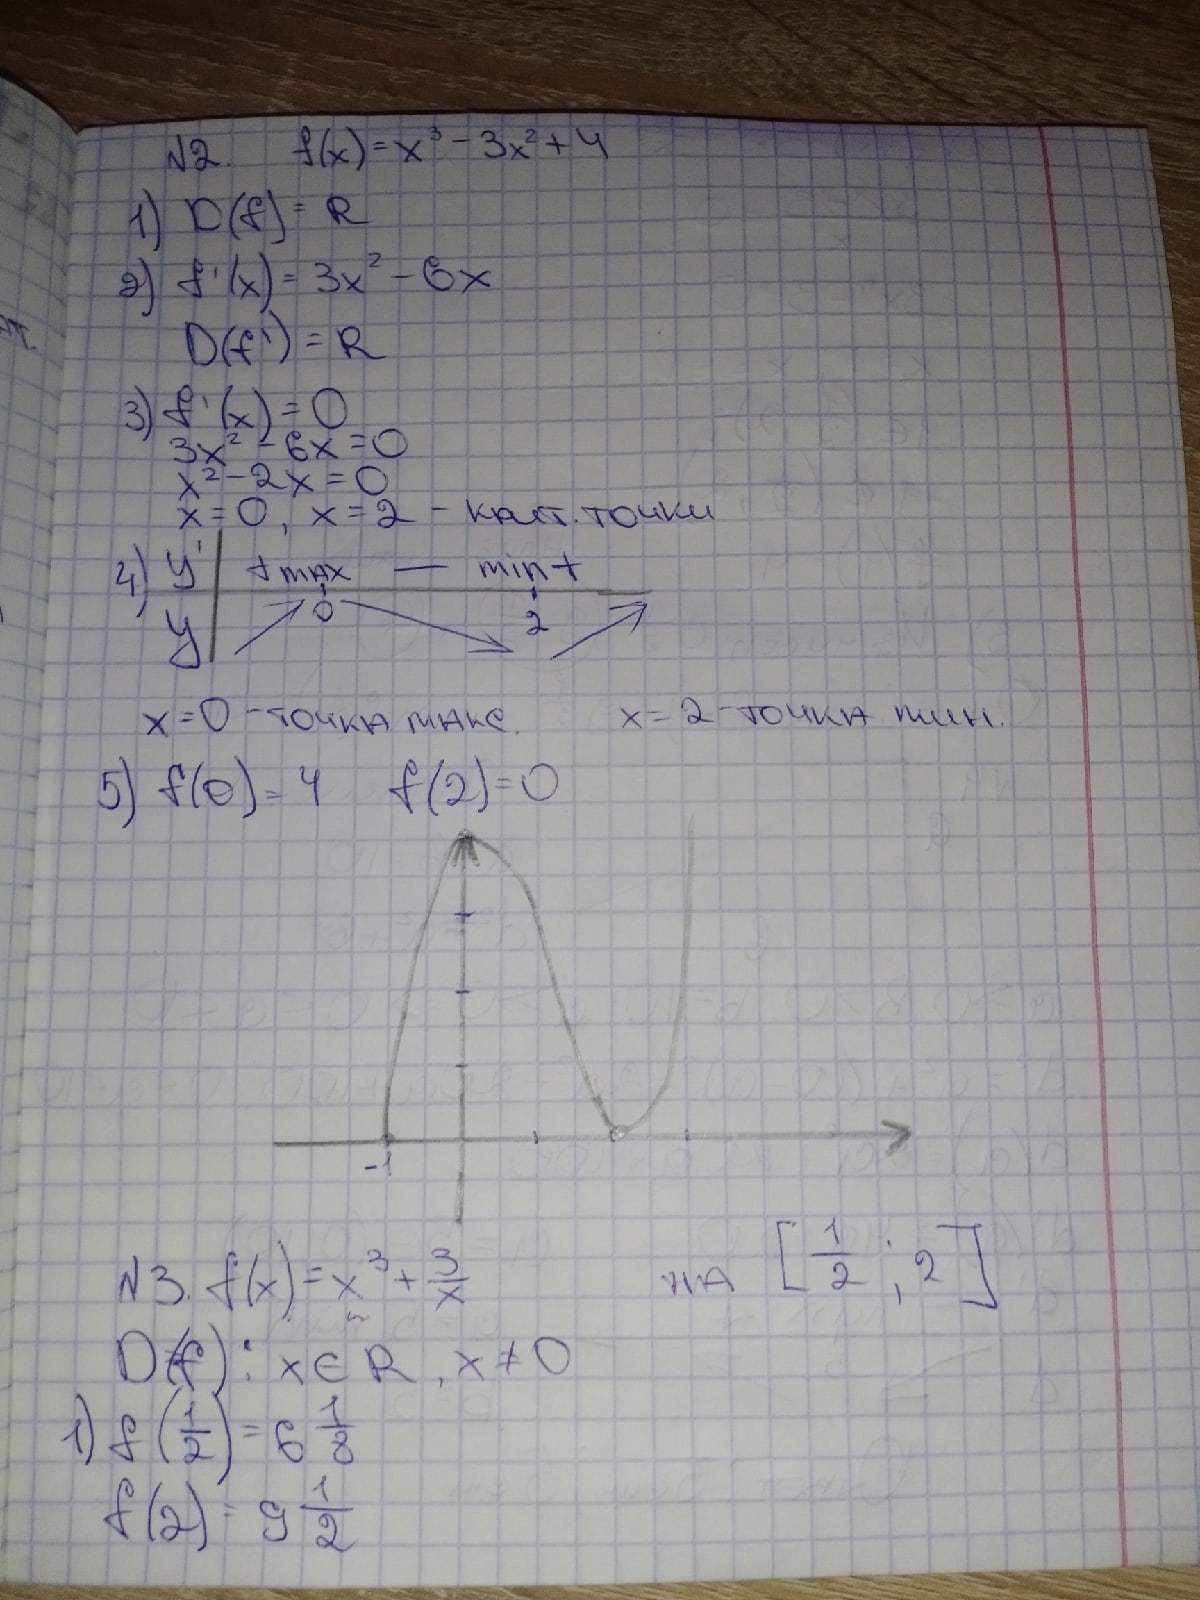 №2. f(x)=x³-3x²+4
1) D(f)=R
2) f'(x)=3x²-6x
D(f')=R
3) f'(x)=0
3x²-6x=0
x²-2x=0
x=0, x=2 - крит. точки
4) y' + max — min +
0 2
y
x=0 - точка макс. x=2 - точка мин.
5) f(0)=4 f(2)=0
-1
№3. f(x)=x³+3/x на [1/2; 2]
D(f): x∈R, x≠0
1) f(1/2)=6 1/8
f(2)=9 1/2